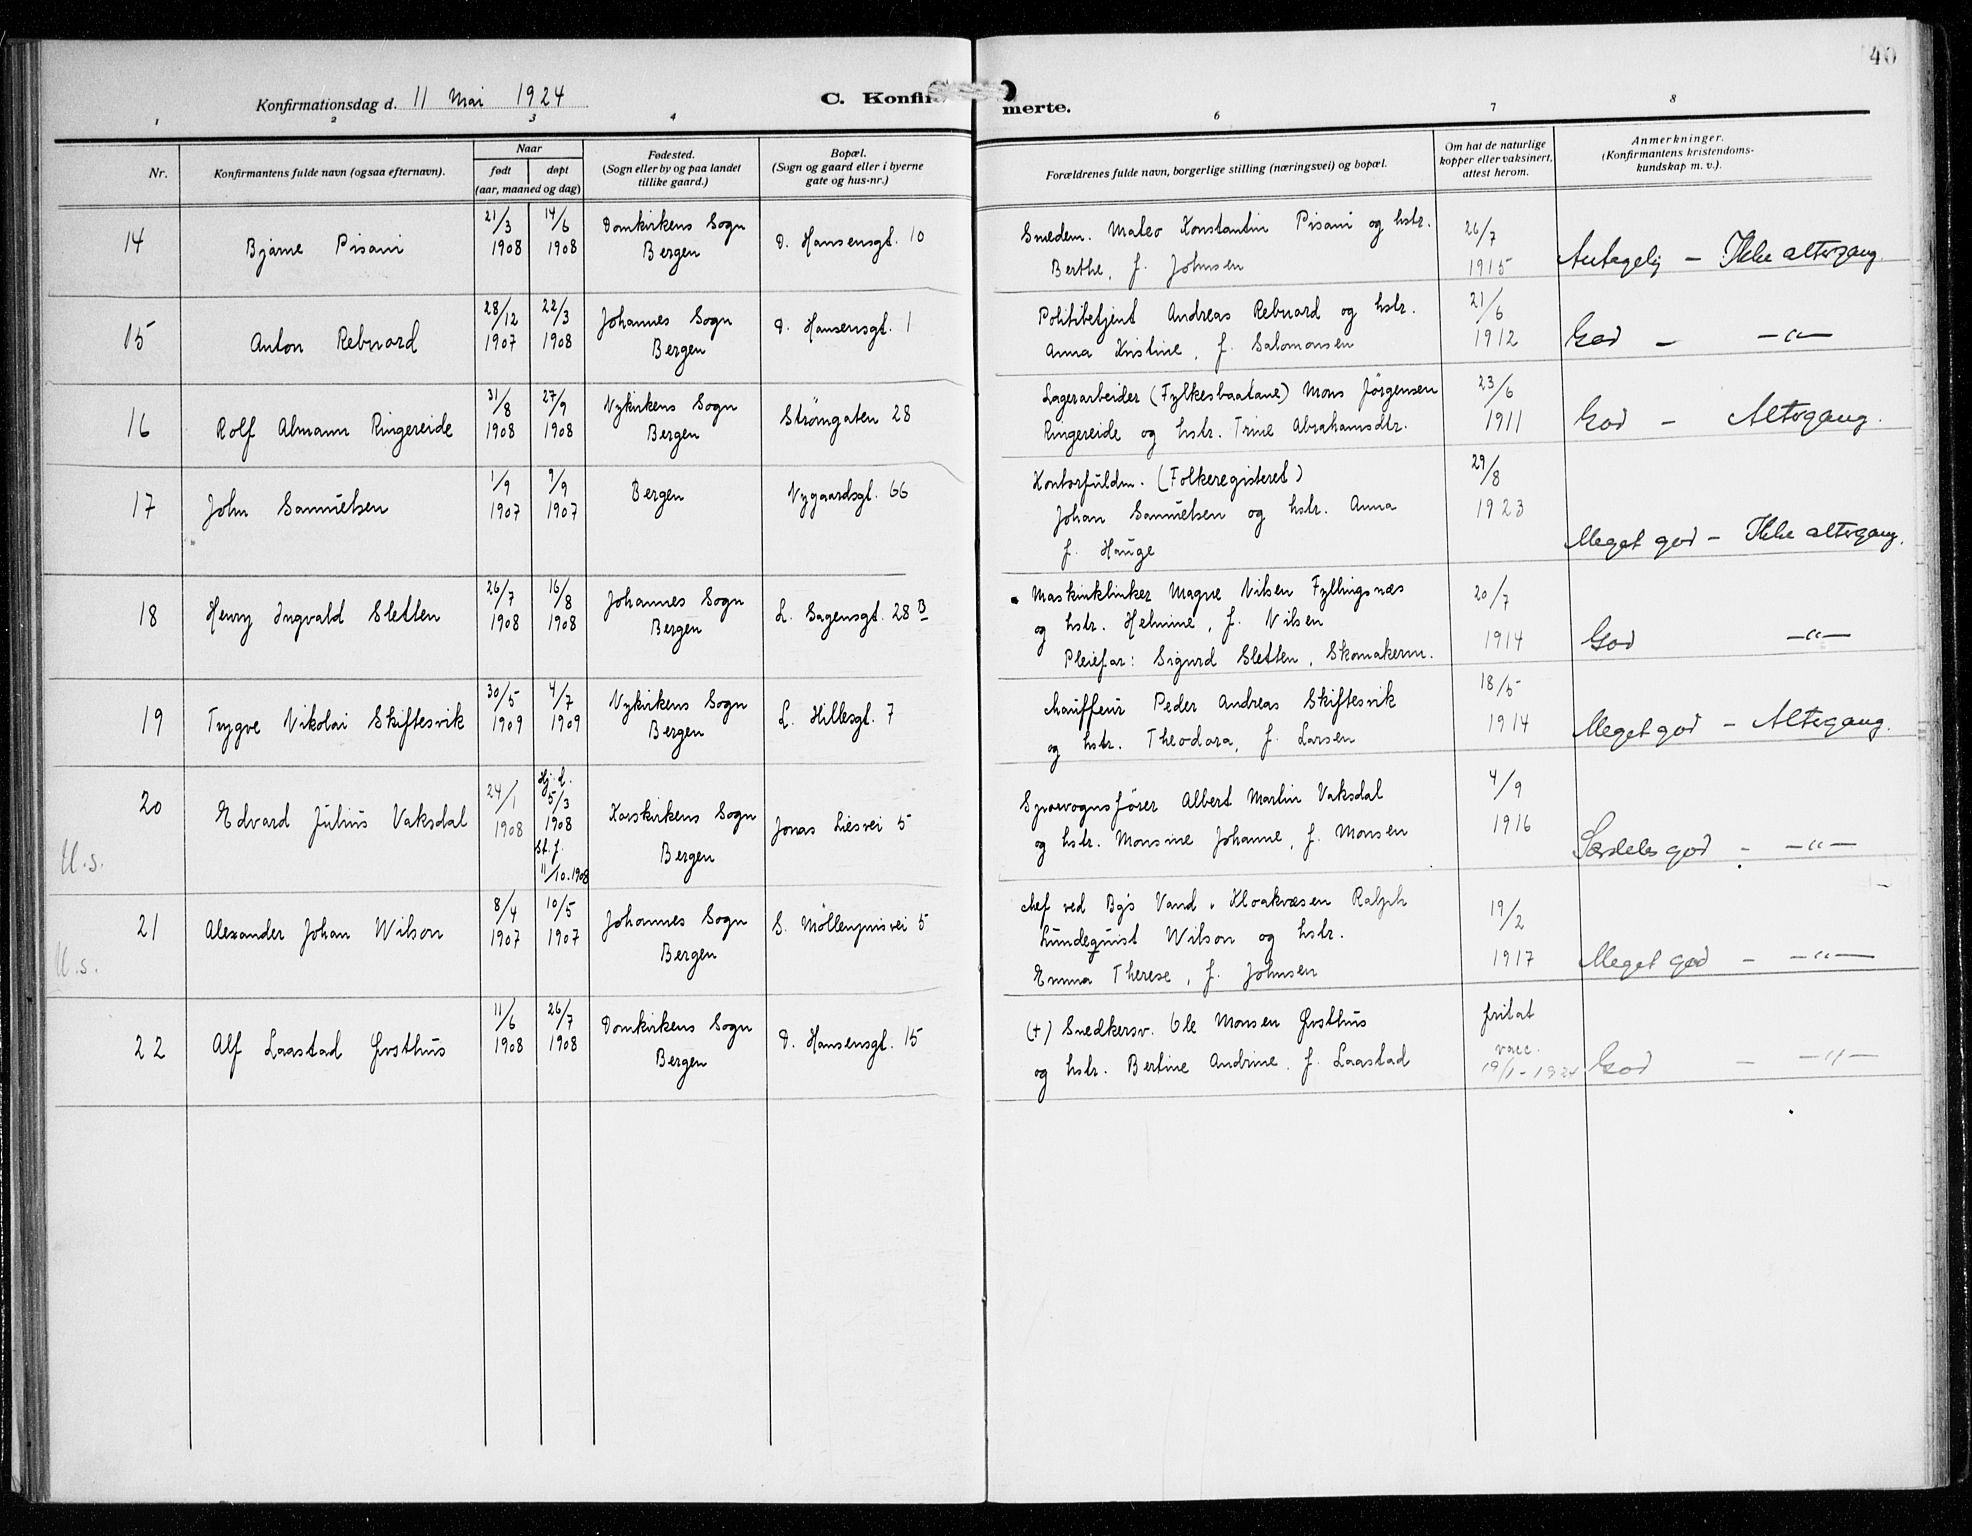 40
Konfirmationsdag d. 11 Mai 1924
C. Konfir
merte.
1 2 3 4 6 7 8
Nr.
Konfirmantens fulde navn (ogsaa efternavn).
Naar
født
døpt
(aar, maaned og dag)
Fødested.
(Sogn eller by og paa landet
tillike gaard.)
Bopæl.
(Sogn og gaard eller i byerne
gate og hus-nr.)
Forældrenes fulde navn, borgerlige stilling (næringsvei) og bopæl.
Om hat de naturlige
kopper eller vaksinert,
attest herom.
Anmerkninger.
(Konfirmantens kristendoms-
kundskap m. v.).
14
Bjarne Pisani
21/3
1908
14/6
1908
Domkirkens Sogn
Bergen
D. Hansensgt. 10
Smedem. Mateo Konstantin Pisani og hstr.
Berthe, f. Johnsen
26/7
1915
Antagelig - Ikke altergang.
15
Anton Rebnord
28/12
1907
22/3
1908
Johannes Sogn
Bergen
D. Hansensgt. 1
Politibetjent Andreas Rebnord og hstr.
Anna Kristine, f. Salomonsen
21/6
1912
God - -"-
16
Rolf Almann Ringereide
31/8
1908
27/9
1908
Nykirkens Sogn
Bergen
Strömgaten 28
Lagerarbeider (Fylkesbaatane) Mons Jørgensen
Ringereide og hstr. Trine Abrahamsdtr.
23/6
1911
God - Altergang.
17
John Samuelsen
1/9
1907
9/9
1907
Bergen
Nygaardsgt. 66
Kontorfuldm. (Folkeregisteret)
Johan Samuelsen og hstr. Anna
f. Hauge
29/8
1923
Meget god - Ikke altergang.
18
Henry Ingvald Sletten
26/7
1908
16/8
1908
Johannes Sogn
Bergen
L. Sagensgt. 28 B
Maskinklinker Magne Nilsen Fyllingsnæs
og hstr. Helmine, f. Nilsen
Pleiefar: Sigurd Sletten, Skomakerm.
20/7
1914
God -"-
19
Trygve Nikolai Skiftesvik
30/5
1909
4/7
1909
Nykirkens Sogn
Bergen
L. Hillesgt. 7
Chauffeur Peder Andreas Skiftesvik
og hstr. Theodora, f. Larsen
18/5
1914
Meget god - Altergang.
20
U.s.
Edvard Julius Vaksdal
24/1
1908
Hj. d.
5/3
1908
St. f.
11/10.1908
Korskirkens Sogn
Bergen
Jonas Liesvei 5
Sporvognsfører Albert Martin Vaksdal
og hstr. Monsine Johanne, f. Monsen
4/9
1916
Særdeles god - -"-
21
U.s.
Alexander Johan Wilson
8/4
1907
10/5
1907
Johannes Sogn
Bergen
S. Möllenprisvei 5
Chef ved Bgs Vand. Kloakvæsen Ralph
Lundequist Wilson og hstr.
Emma Therese, f. Johnsen
19/2
1917
Meget god - -"-
22
Alf Laastad Gvsthus
11/6
1908
26/7
1908
Domkirkens Sogn
Bergen
D. Hansensgt. 15
(+) Snedkersv. Ole Monsen Gvsthus
og hstr. Bertine Andrine, f. Laastad
fritat
vacc.
19/1-1924
God - -"-